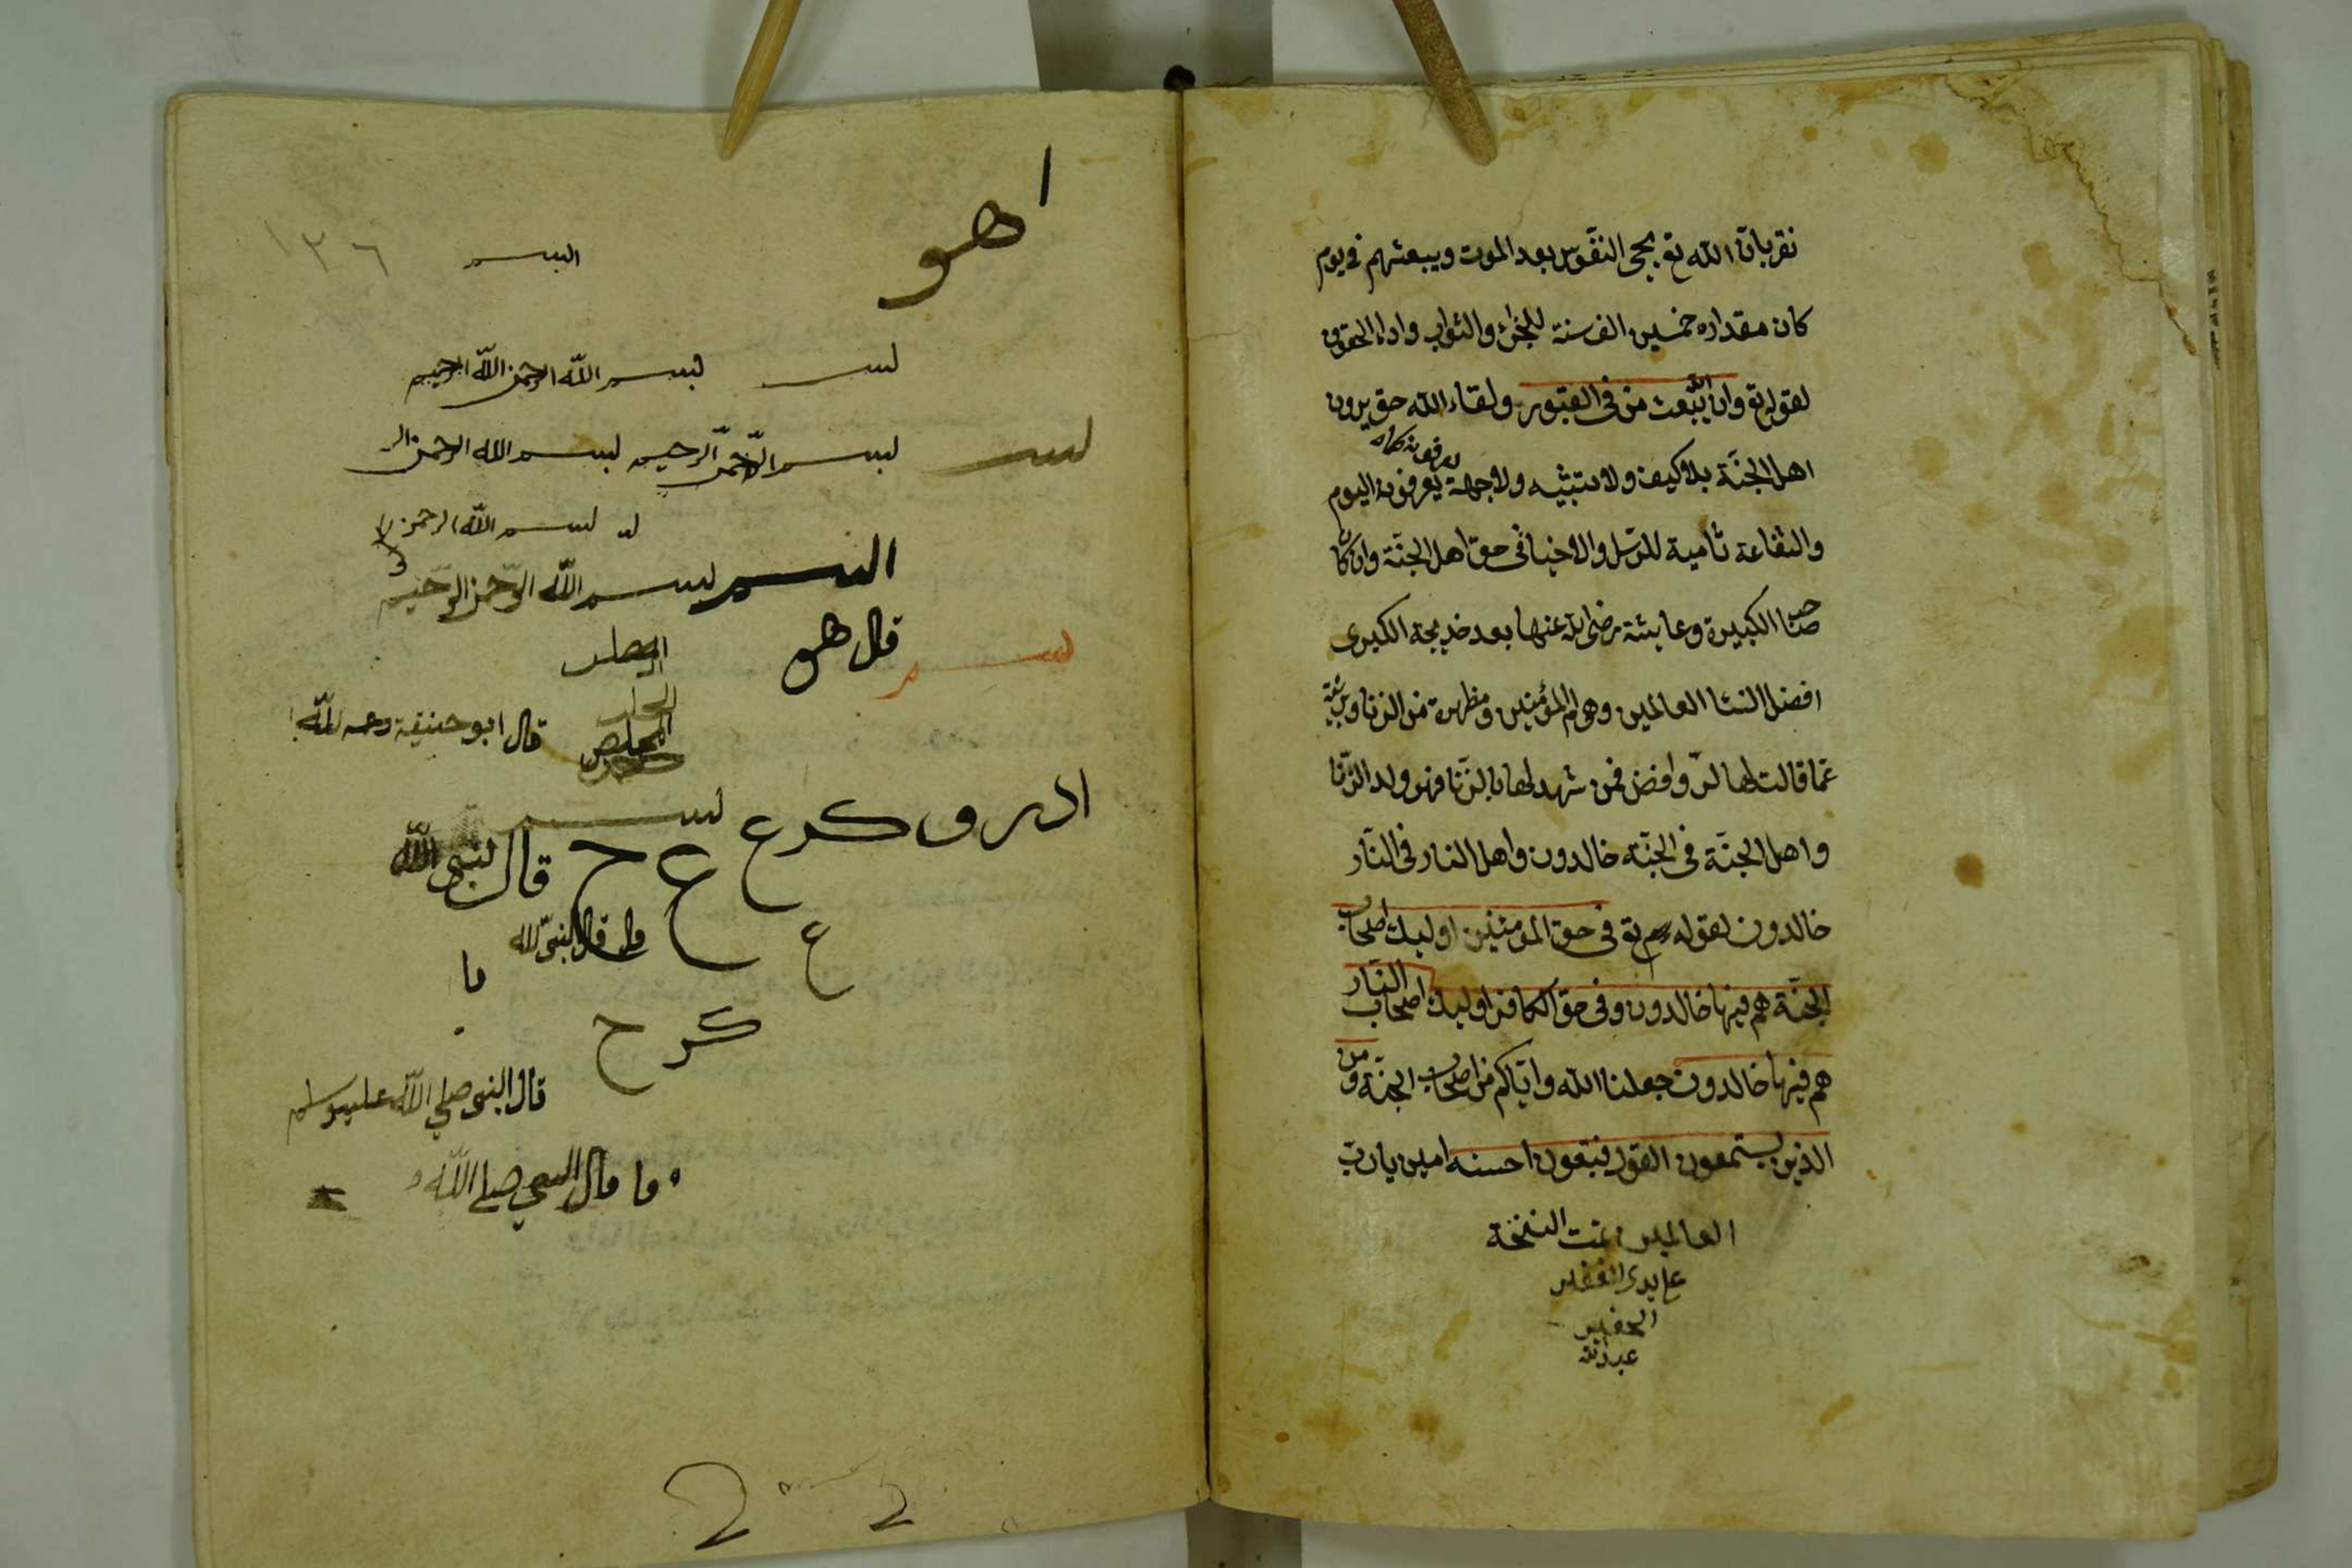 نقر بان الله تع يحيى النفوس بعد الموت ويبعثهم فى يوم
كان مقداره خمسين الف سنة للجزاء والثواب واداء الحقوق
لقوله تع وان الله يبعث من فى القبور ولقاء الله حق يرون
اهل الجنة بلا كيف ولا ولا جهة يعرفونه اليوم
والشفاعة للرسل والاخيار فى حق اهل الجنة وان كان
صاحب الكبيرة وعايشة رضى الله عنها بعد خديجة الكبرى
افضل النساء العالمين وهى ام المؤمنين ومطهرة من الزنا وبريئة
عما قالت لها الروافض فمن شهد لها بالزنا فهو ولد الزنا
واهل الجنة فى الجنة خالدون واهل النار فى النار
خالدون لقوله تع فى حق المؤمنين اوليك اصحاب
الجنة هم فيها خالدون وفى حق الكافر اوليك اصحاب النار
هم فيها خالدون جعلنا الله واياكم من اصحاب الجنة ومن
الذين يستمعون القول فيتبعون احسنه امين يا رب
العالمين تمت النسخة
على يدى الفقير
الحقير
عبد الله
ا
هو
١٣٦ البسم
بس بسم الله الرحمن الله الرحيم
بس بسم الرحمن الرحيم بسم الله الرحمن الر
بس بسم الله الرحمن
البسم بسم الله الرحمن الرحيم
بسم قال هو
قال ابو حنيفة رحمه الله
بس
ا د ر و ك ر ع
ع ح قال لنبى الله
ع قال النبى لله
ما
ك ر ح
قال النبى صلى الله عليه وسلم
ما قال النبي صلى الله